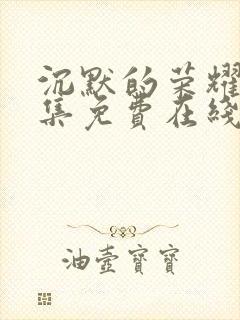 沉默的荣耀
集免费在线
油壶宝宝